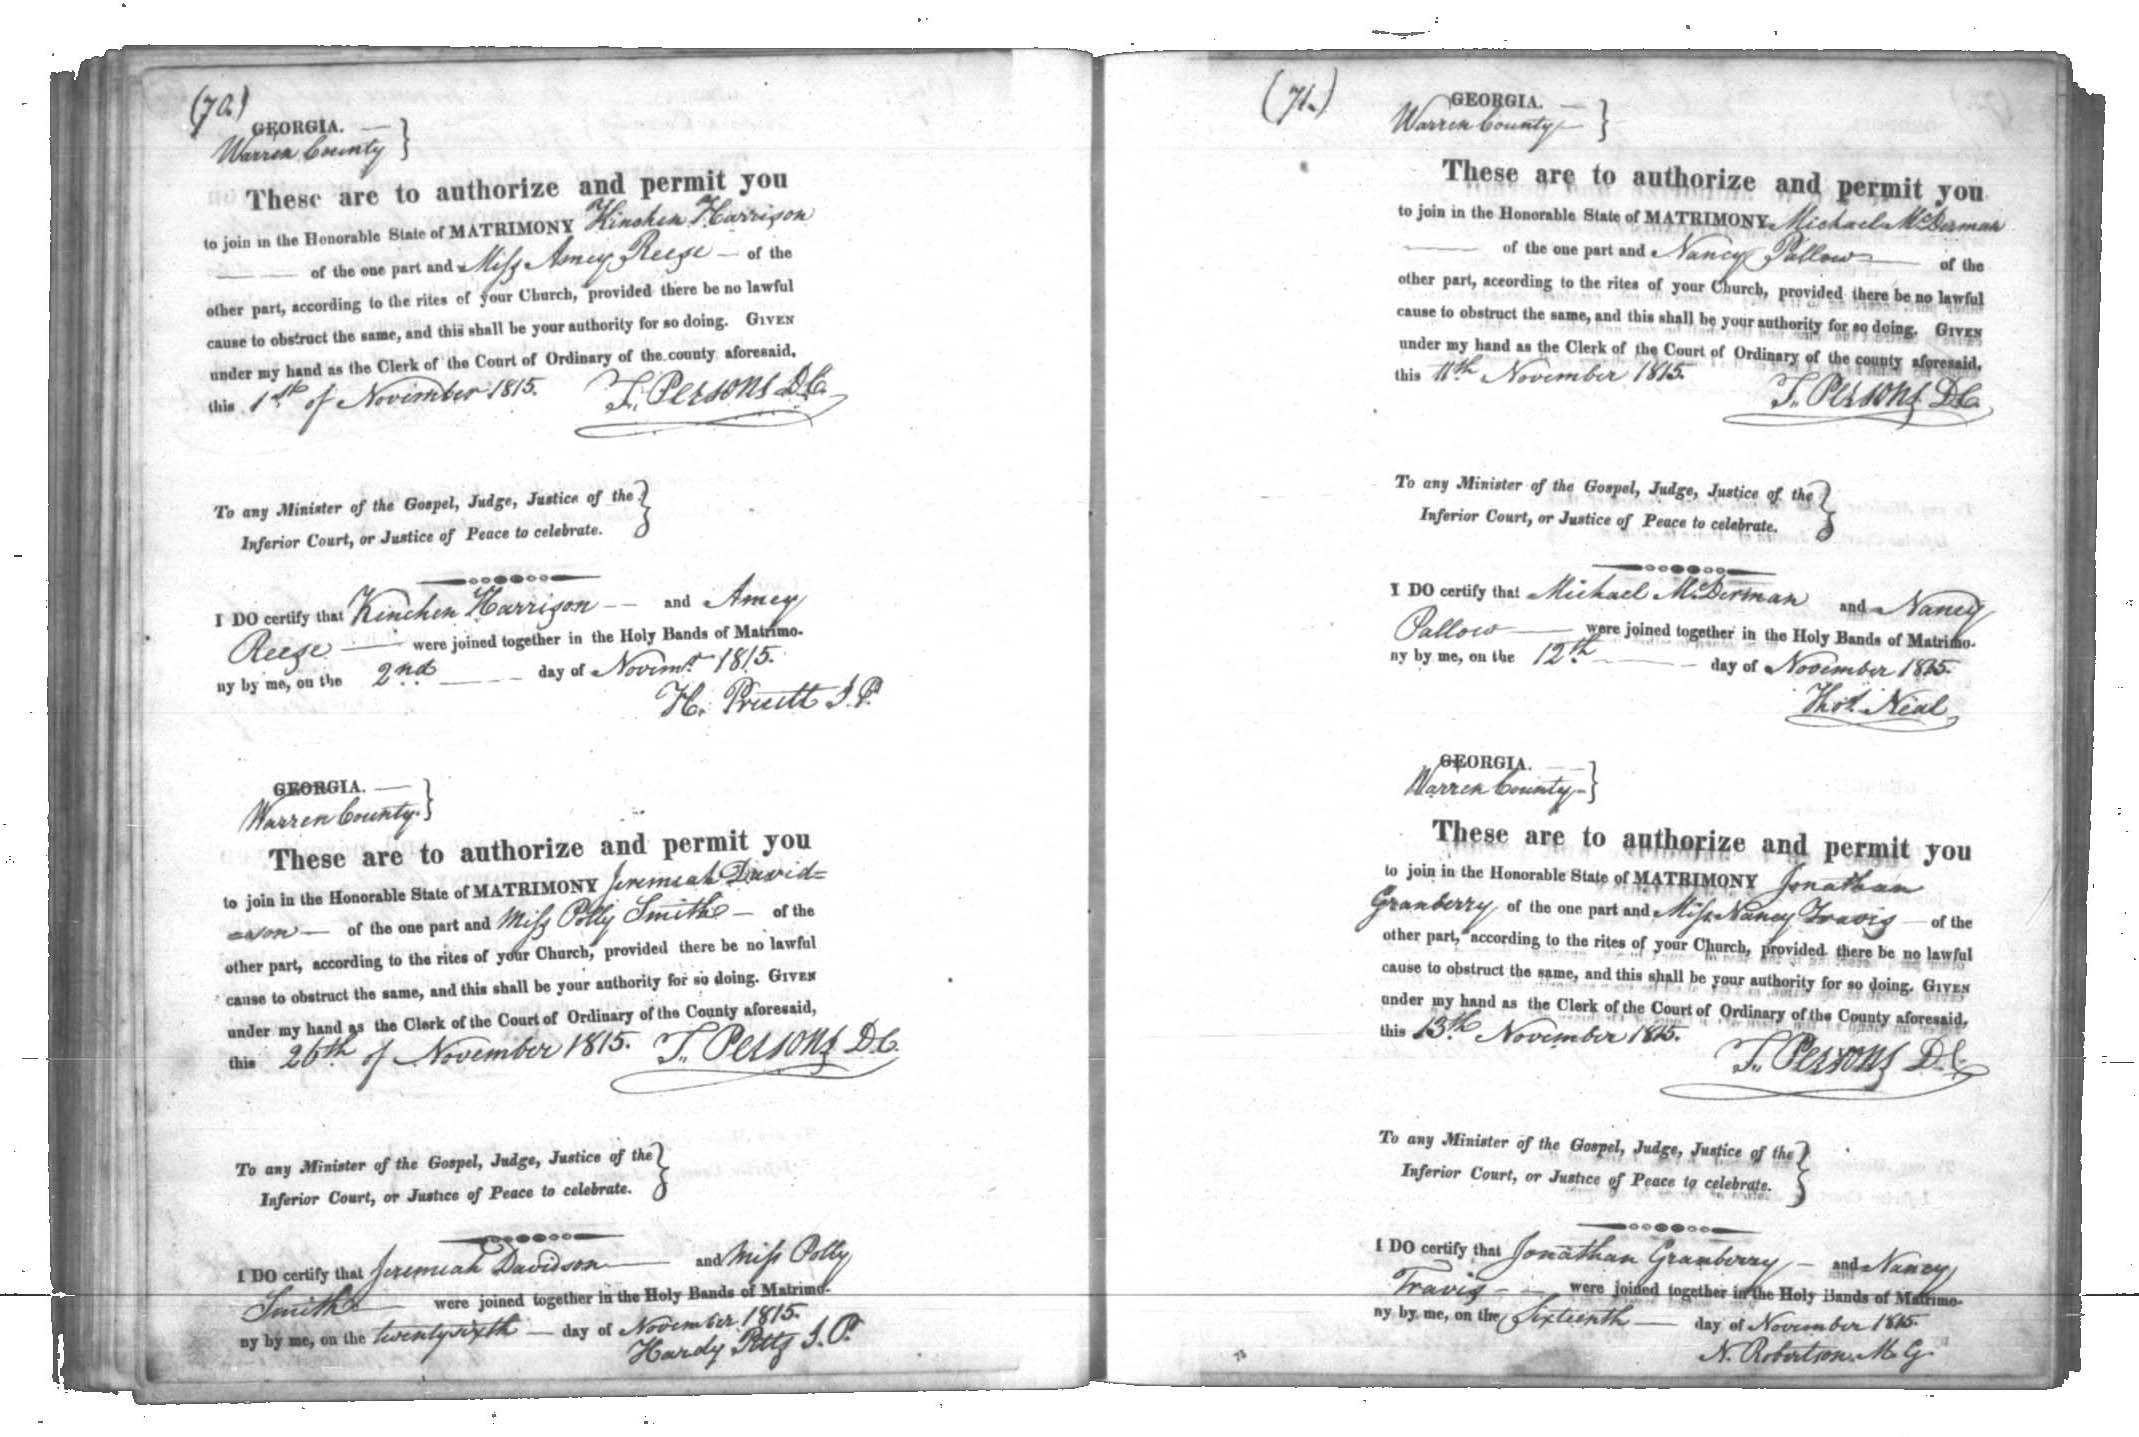 (70.)
GEORGIA. —
Warren County }
These are to authorize and permit you
to join in the Honorable State of MATRIMONY Kinchen Harrison
— — of the one part and Miss Amey Reese — of the
other part, according to the rites of your Church, provided there be no lawful
cause to obstruct the same, and this shall be your authority for so doing. GIVEN
under my hand as the Clerk of the Court of Ordinary of the county aforesaid,
this 1st of November 1815. T. Persons D.C.
To any Minister of the Gospel, Judge, Justice of the }
Inferior Court, or Justice of Peace to celebrate.
I DO certify that Kinchen Harrison — and Amey
Reese — were joined together in the Holy Bands of Matrimo-
ny by me, on the 2nd — day of Novimr 1815.
H. Pruett J.P.
GEORGIA. —
Warren County. }
These are to authorize and permit you
to join in the Honorable State of MATRIMONY Jeremiah David=
=son — of the one part and Miss Polly Smith — of the
other part, according to the rites of your Church, provided there be no lawful
cause to obstruct the same, and this shall be your authority for so doing. GIVEN
under my hand as the Clerk of the Court of Ordinary of the County aforesaid,
this 26th of November 1815. T. Persons D.C.
To any Minister of the Gospel, Judge, Justice of the }
Inferior Court, or Justice of Peace to celebrate.
I DO certify that Jeremiah Davidson — and Miss Polly
Smith — were joined together in the Holy Bands of Matrimo-
ny by me, on the twentysixth — day of November 1815.
Hardy Pitts J.P.
(71.)
GEORGIA. —
Warren County — }
These are to authorize and permit you
to join in the Honorable State of MATRIMONY Michael McDerman
— of the one part and Nancy Pallow — of the
other part, according to the rites of your Church, provided there be no lawful
cause to obstruct the same, and this shall be your authority for so doing. GIVEN
under my hand as the Clerk of the Court of Ordinary of the county aforesaid,
this 11th November 1815. T. Persons D.C.
To any Minister of the Gospel, Judge, Justice of the }
Inferior Court, or Justice of Peace to celebrate.
I DO certify that Michael McDerman and Nancy
Pallow — were joined together in the Holy Bands of Matrimo-
ny by me, on the 12th — day of November 1815.
Thos. Neal
GEORGIA. —
Warren County — }
These are to authorize and permit you
to join in the Honorable State of MATRIMONY Jonathan
Granberry of the one part and Miss Nancy Travis — of the
other part, according to the rites of your Church, provided there be no lawful
cause to obstruct the same, and this shall be your authority for so doing. GIVEN
under my hand as the Clerk of the Court of Ordinary of the County aforesaid,
this 13th November 1815.
T. Persons D.C.
To any Minister of the Gospel, Judge, Justice of the }
Inferior Court, or Justice of Peace to celebrate.
I DO certify that Jonathan Granberry — and Nancy
Travis — were joined together in the Holy Bands of Matrimo-
ny by me, on the Sixteenth — day of November 1815.
N. Robertson M.G.